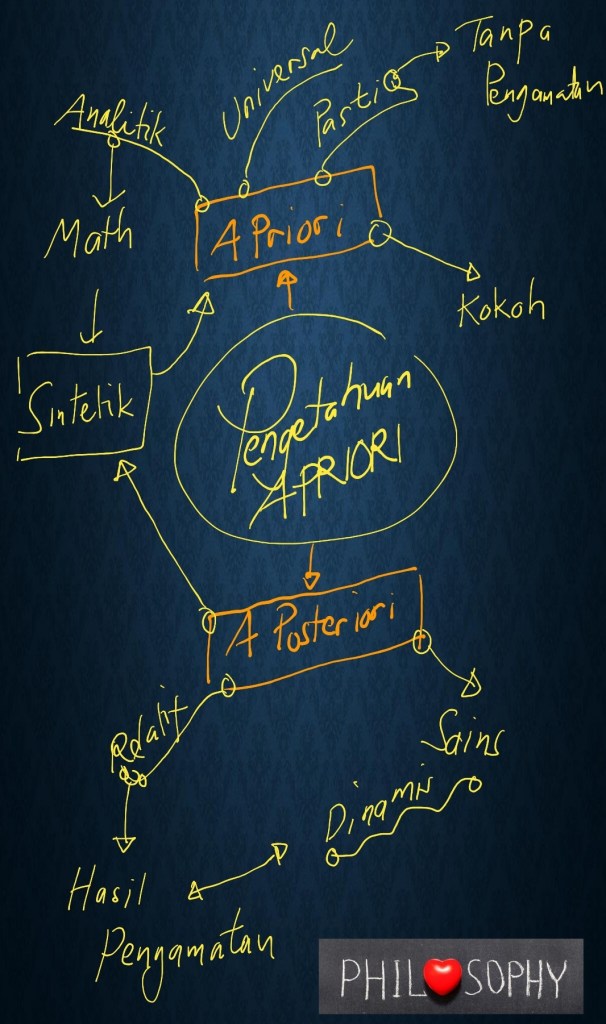 Tanpa
Pengamatan
Universal
Pasti
Analitik
Math
A Priori
Kokoh
Sintetik
Pengetahuan
APRIORI
A Posteriori
Relatif
Sains
Dinamis
Hasil
Pengamatan
PHIL❤SOPHY